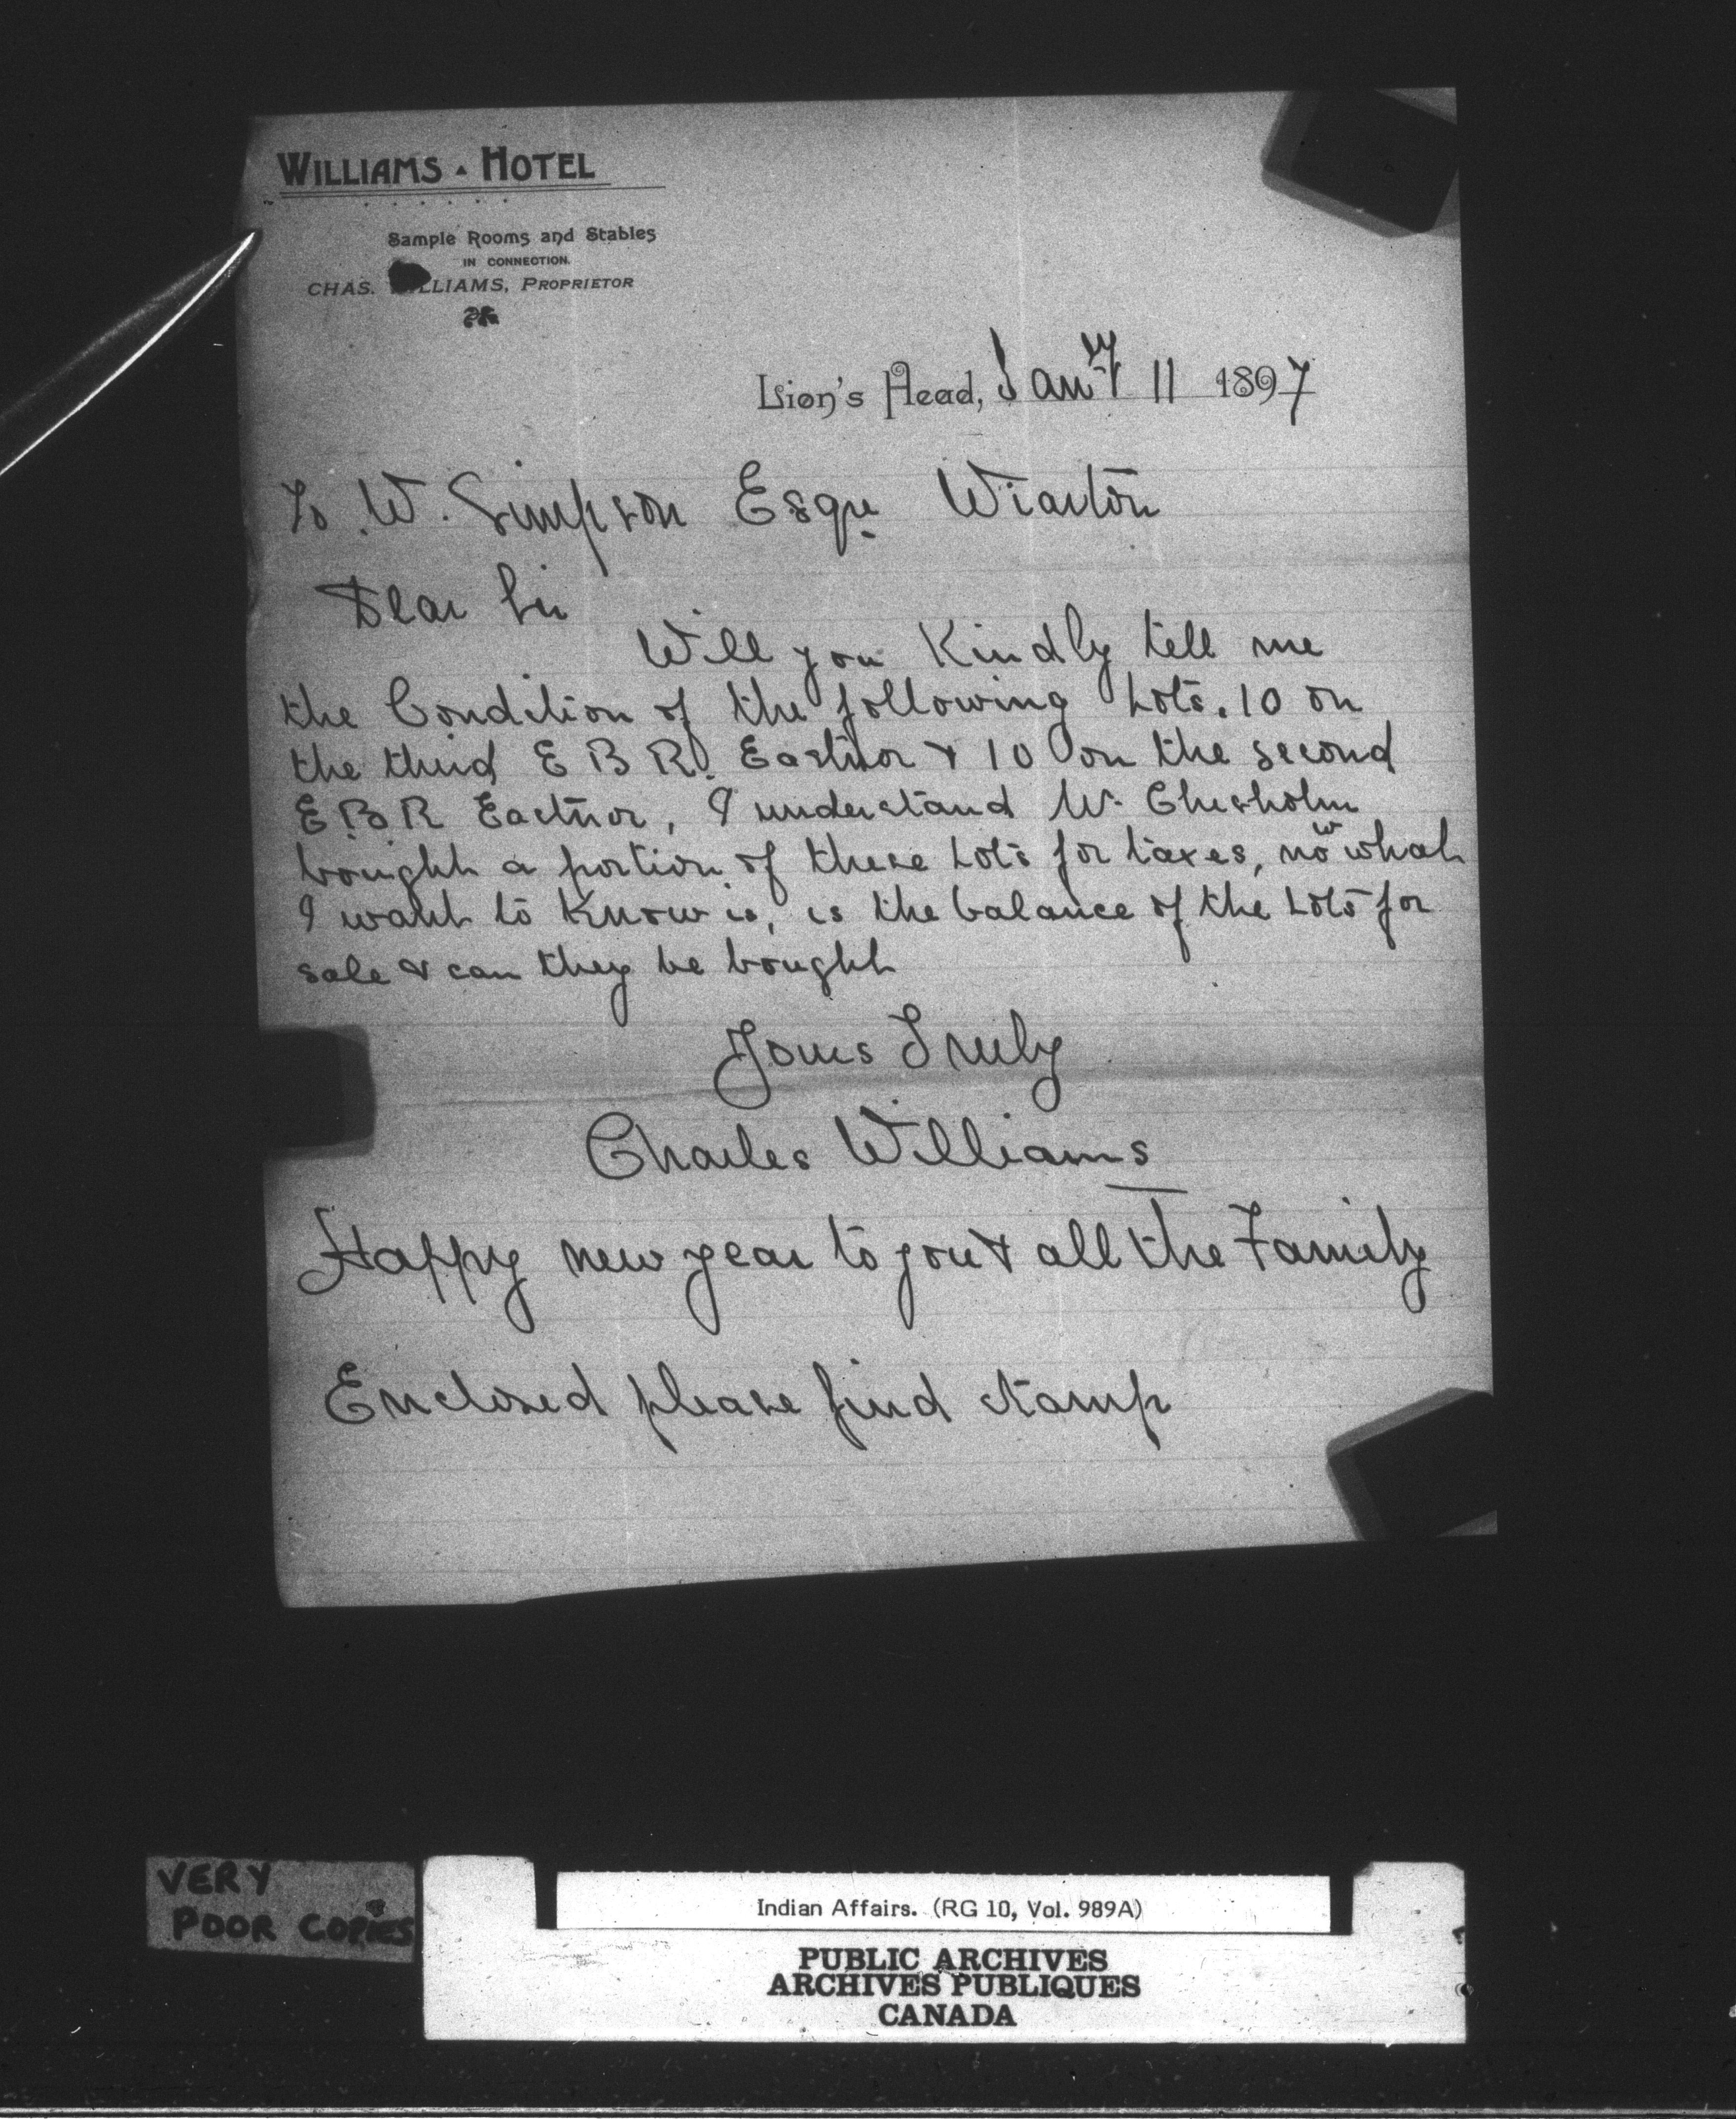 WILLIAMS . HOTEL
Sample Rooms and Stables
IN CONNECTION.
CHAS. WILLIAMS, PROPRIETOR
Lion's Head, Jany 11 1897
To W. Simpson Esqre Wiarton
Dear Sir
Will you Kindly tell me
the Condition of the following Lots. 10 on
the third E B R. Eastnor & 10 on the second
E B R Eastnor, I understand W. Chisholm
bought a portion of these Lots for taxes, now what
I want to Know is, is the balance of the Lots for
sale & can they be bought
Yours Truly
Charles Williams
Happy new year to you & all the Family
Enclosed please find stamp
VERY
POOR COPIES
Indian Affairs. (RG 10, Vol. 989A)
PUBLIC ARCHIVES
ARCHIVES PUBLIQUES
CANADA